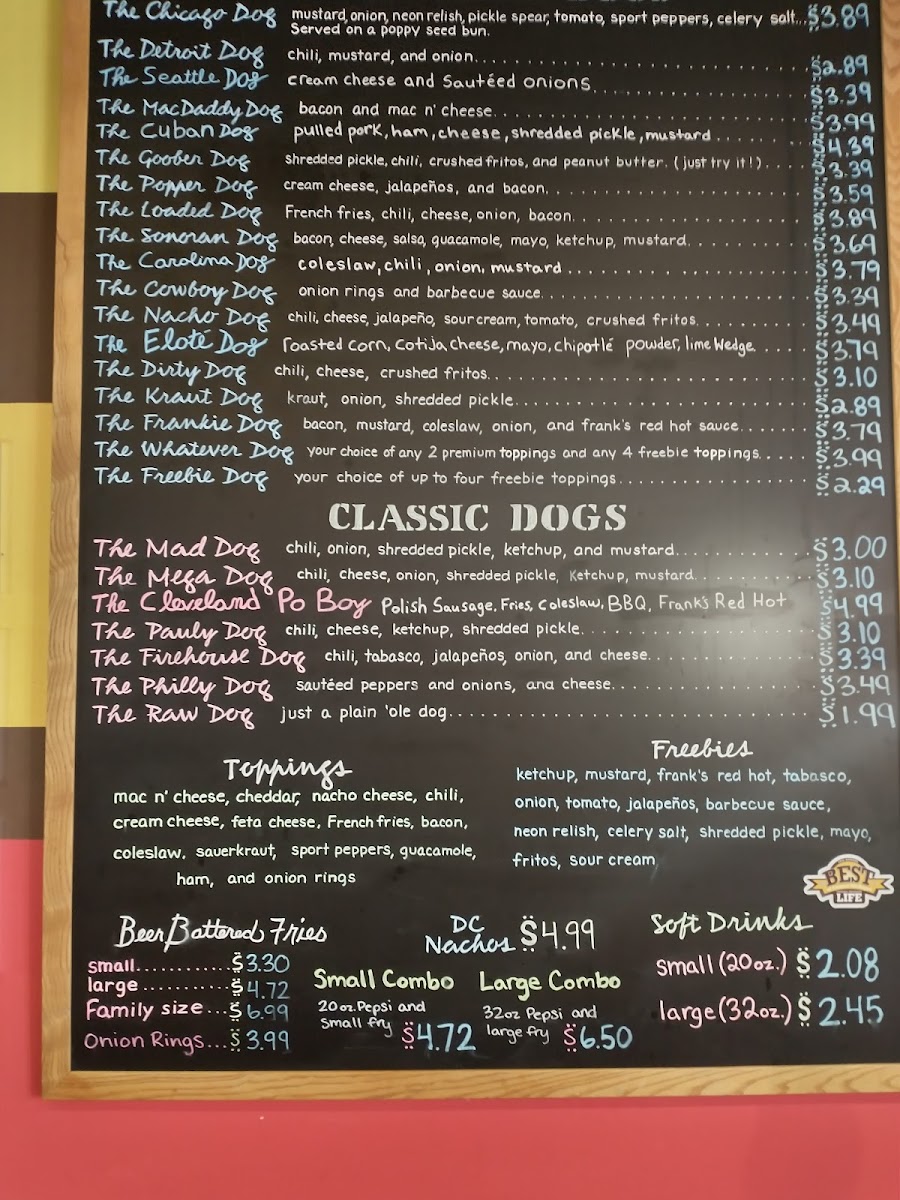 The Chicago Dog mustard, onion, neon relish, pickle spear, tomato, sport peppers, celery salt...$3.89
Served on a poppy seed bun.
The Detroit Dog chili, mustard, and onion...$2.89
The Seattle Dog cream cheese and Sautéed onions...$3.39
The MacDaddy Dog bacon and mac n' cheese...$3.99
The Cuban Dog pulled pork, ham, cheese, shredded pickle, mustard...$4.39
The Goober Dog shredded pickle, chili, crushed fritos, and peanut butter. (just try it!)...$3.39
The Popper Dog cream cheese, jalapeños, and bacon...$3.59
The Loaded Dog French fries, chili, cheese, onion, bacon...$3.89
The Sonoran Dog bacon, cheese, salsa, guacamole, mayo, ketchup, mustard...$3.69
The Carolina Dog coleslaw, chili, onion, mustard...$3.79
The Cowboy Dog onion rings and barbecue sauce...$3.39
The Nacho Dog chili, cheese, jalapeño, sour cream, tomato, crushed fritos...$3.49
The Eloté Dog roasted corn, Cotija cheese, mayo, chipotlé powder, lime wedge...$3.79
The Dirty Dog chili, cheese, crushed fritos...$3.10
The Kraut Dog kraut, onion, shredded pickle...$2.89
The Frankie Dog bacon, mustard, coleslaw, onion, and frank's red hot sauce...$3.79
The Whatever Dog your choice of any 2 premium toppings and any 4 freebie toppings...$3.99
The Freebie Dog your choice of up to four freebie toppings...$2.29
CLASSIC DOGS
The Mad Dog chili, onion, shredded pickle, ketchup, and mustard...$3.00
The Mega Dog chili, cheese, onion, shredded pickle, Ketchup, mustard...$3.10
The Cleveland Po Boy Polish Sausage, Fries, Coleslaw, BBQ, Frank's Red Hot $4.99
The Pauly Dog chili, cheese, ketchup, shredded pickle...$3.10
The Firehouse Dog chili, tabasco, jalapeños, onion, and cheese...$3.39
The Philly Dog sautéed peppers and onions, and cheese...$3.49
The Raw Dog just a plain 'ole dog...$1.99
Toppings
mac n' cheese, cheddar, nacho cheese, chili,
cream cheese, feta cheese, French fries, bacon,
coleslaw, sauerkraut, sport peppers, guacamole,
ham, and onion rings
Freebies
ketchup, mustard, frank's red hot, tabasco,
onion, tomato, jalapeños, barbecue sauce,
neon relish, celery salt, shredded pickle, mayo,
fritos, sour cream
BEST
LIFE
Beer Battered Fries
small...$3.30
large...$4.72
Family size...$6.99
Onion Rings...$3.99
DC
Nachos $4.99
Small Combo
20oz. Pepsi and
Small fry $4.72
Large Combo
32oz Pepsi and
large fry $6.50
Soft Drinks
small (20oz.) $2.08
large (32oz.) $2.45